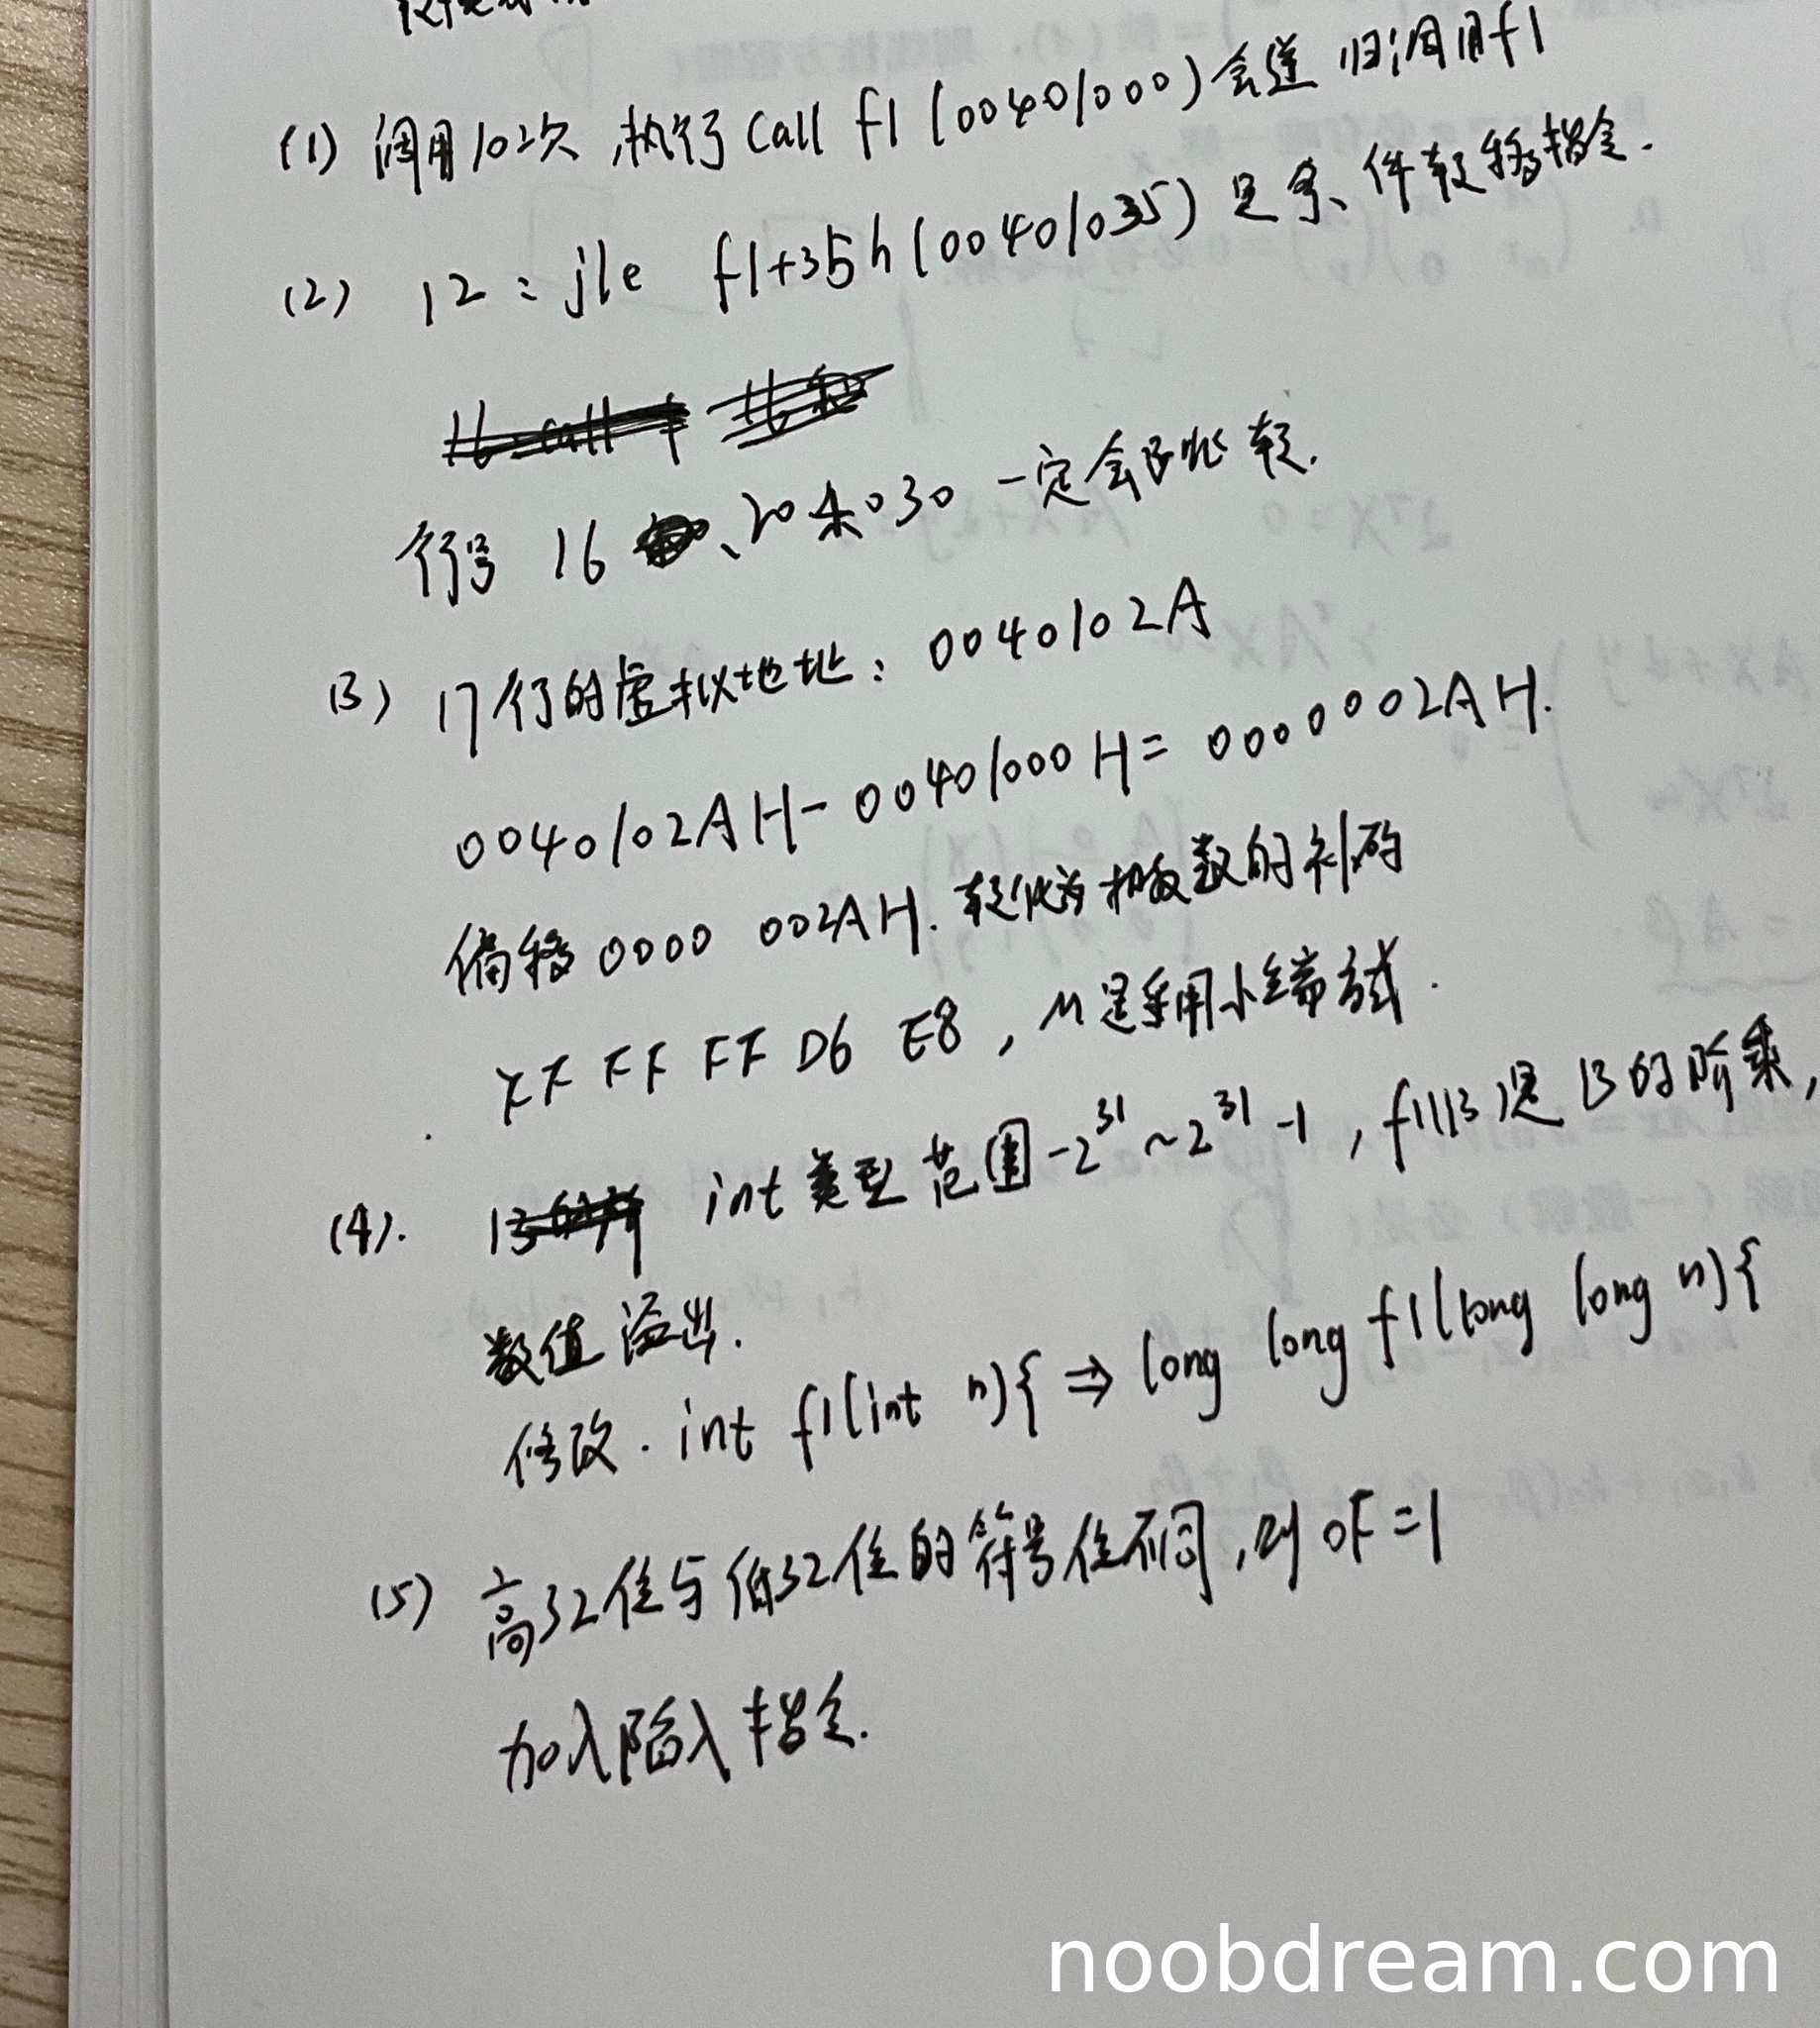 (1) 调用102次,执行 call f1 (00401000)会递归调用f1
(2) 12: jle f1+35h(00401035)是条件转移指令.
行号 16、20和30一定会跳转.
(3) 17行的虚拟地址: 0040102A
0040102AH-00401000H=0000002AH.
偏移 0000 002AH. 转化为相反数的补码
FF FF FF D6 E8, M是采用小端方式.
(4). int类型范围-2^31~2^31-1, f1(13)是13的阶乘,
数值溢出.
修改. int f1(int n){ ⇒ long long f1(long long n){
(5) 高32位与低32位的符号位不同,则 OF=1
加入陷入指令.
noobdream.com